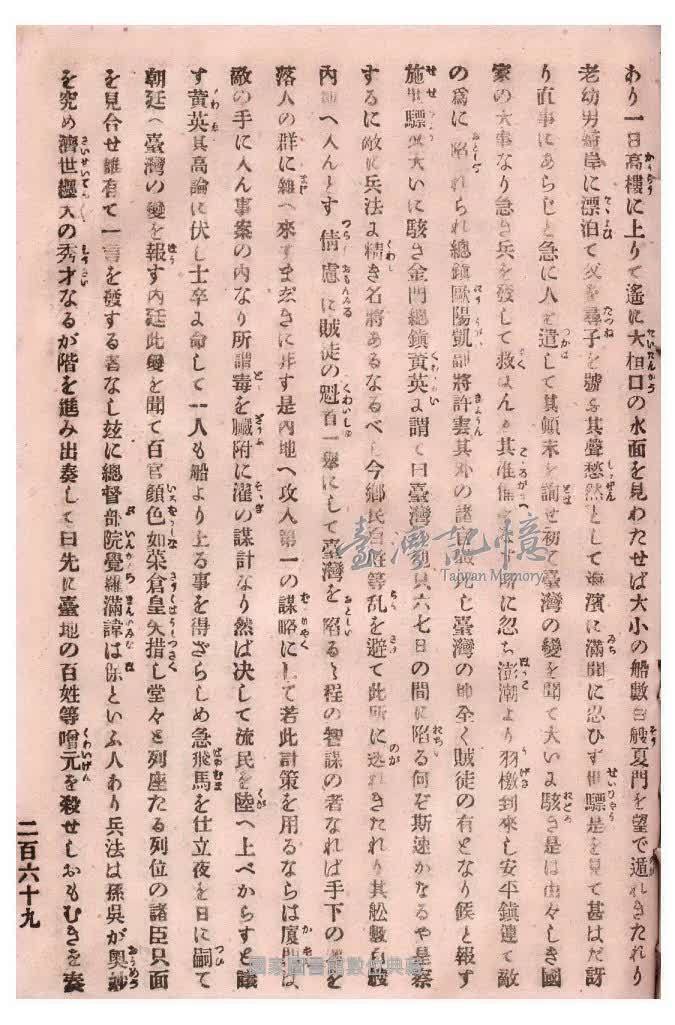 あり一日高樓に上りて遙に大担口の水面を見わたせば大小の船數百艘夏門を望で遁れきたれり
老幼男婦岸に漂泊て父を尋子を號ぶ其聲愁然として海濱に滿聞に忍びず世驃是を見て甚はだ訝
り直事にあらじと急に人を遣して其顛末を詢せ初て臺灣の變を聞て大いに駭き是は由々しき國
家の大事なり急ぎ兵を發して救はんと其准備を す所に忽ち澎湖より羽檄到來し安平鎭遂て敵
の爲に陷れられ總鎭歐陽凱副將許雲其外の諸官戰死し臺灣の地全く賊徒の有となり候と報す
施世驃は大いに駭き金門總鎭黄英に謂て曰臺灣の地只六七日の間に陷る何ぞ斯速かなるや是察
するに敵に兵法に精き名將あるなるべし今鄉民百姓等乱を避て此所に逃れきたれり其舩數百艘
內地へ入んとす倩慮に賊徒の魁首一擧にして臺灣を陷るゝ程の智謀の者なれば手下の を
落人の群に雜へ來すまじきに非す是內地へ攻入第一の謀略にして若此計策を用るならは厦門は
敵の手に入ん事案の內なり所謂毒を臟附に濯の謀計なり然ば决して流民を陸へ上べからずと議
す黄英其高論に伏し士卒に命して一人も船より上る事を得ざらしめ急飛馬を仕立夜を日に嗣て
朝廷へ臺灣の變を報す內廷此變を聞て百官顏色如菜倉皇失措し堂々と列座たる列位の諸臣只面
を見合せ誰有て一言を發する者なし玆に總督部院覺羅滿諱は保といふ人あり兵法は孫吳が奧妙
を究め濟世經天の秀才なるが階を進み出奏して曰先に臺地の百姓等噲元を殺せしおもむきを奏
二百六十九
臺灣記憶
Taiwan Memory
國家圖書館數位典藏